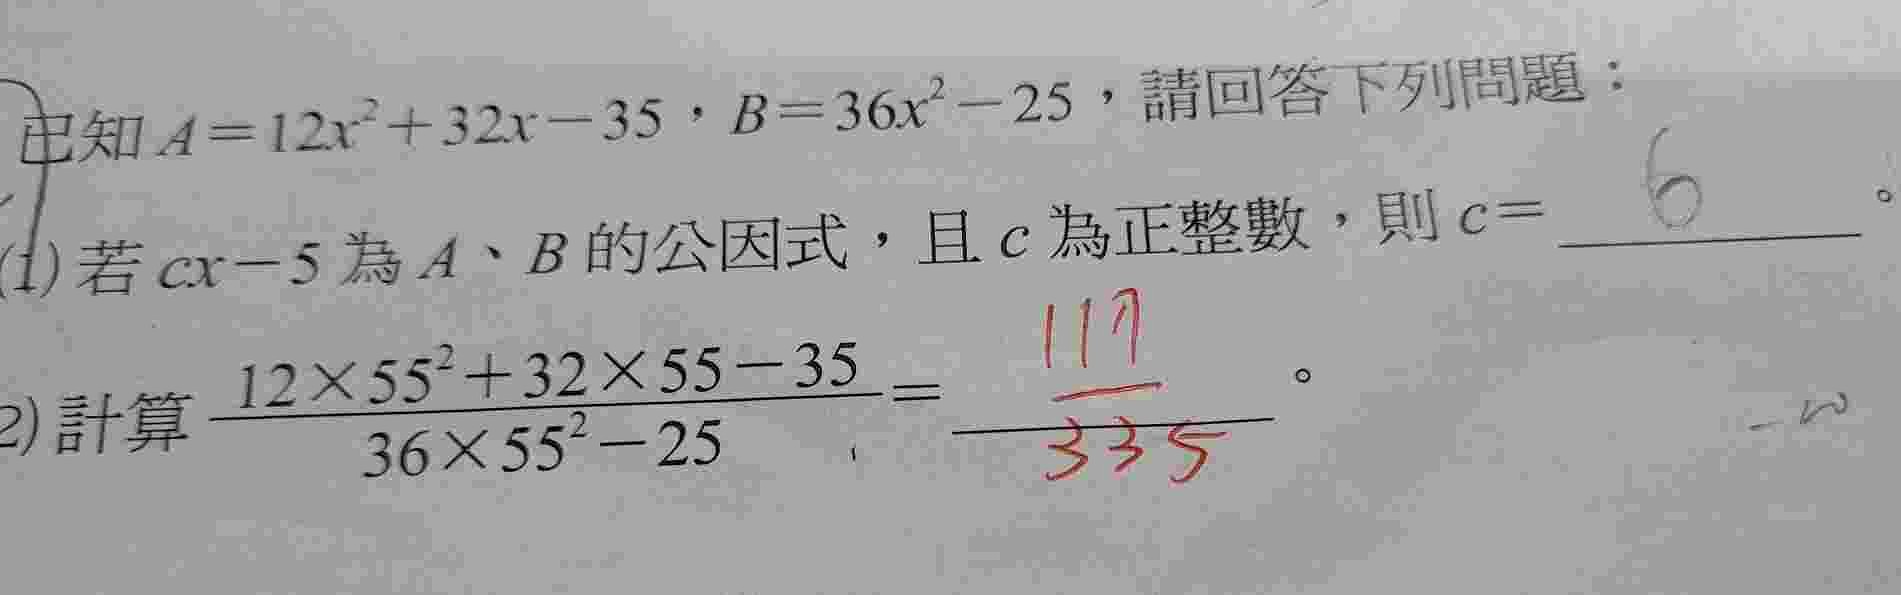 已知 A=12x²+32x-35，B=36x²-25，請回答下列問題：
(1) 若 cx-5 為 A、B 的公因式，且 c 為正整數，則 c= 6 。
2) 計算 (12×55²+32×55-35)/(36×55²-25) = 117/335 。